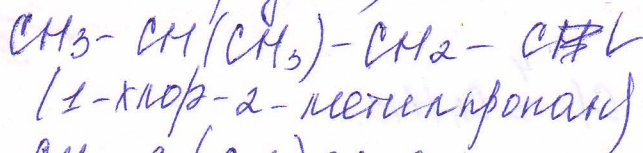 CH3 - CH(CH3) - CH2 - Cl
(1-хлор-2-метилпропан)